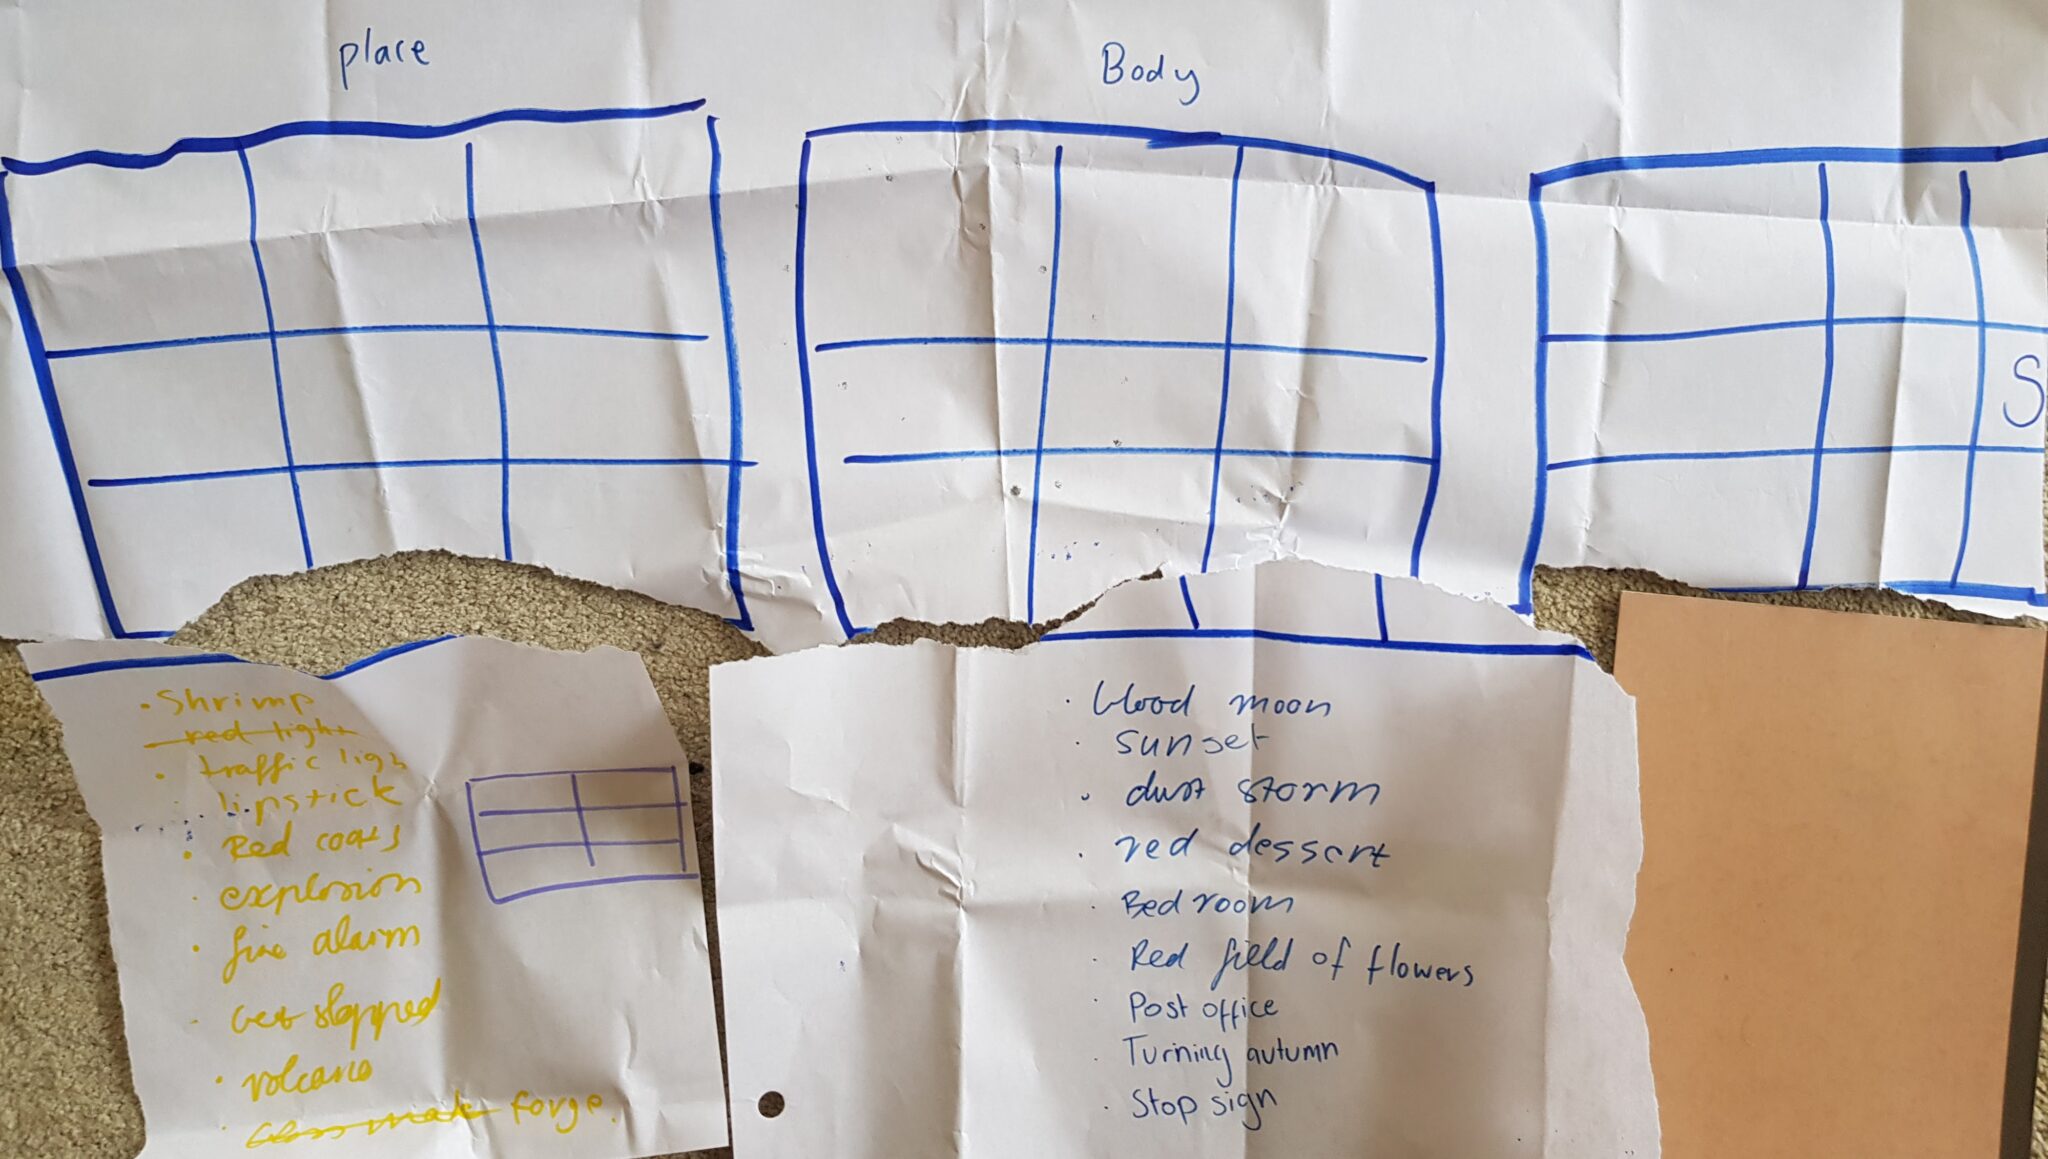 place
Body
S
• Shrimp
red light
• traffic ligh
• lipstick
• Red coats
• explosion
• fire alarm
• Get slapped
• volcano
• forge.
• blood moon
• sunset
• dust storm
• red dessert
• Bedroom
• Red field of flowers
• Post office
• Turning autumn
• Stop sign